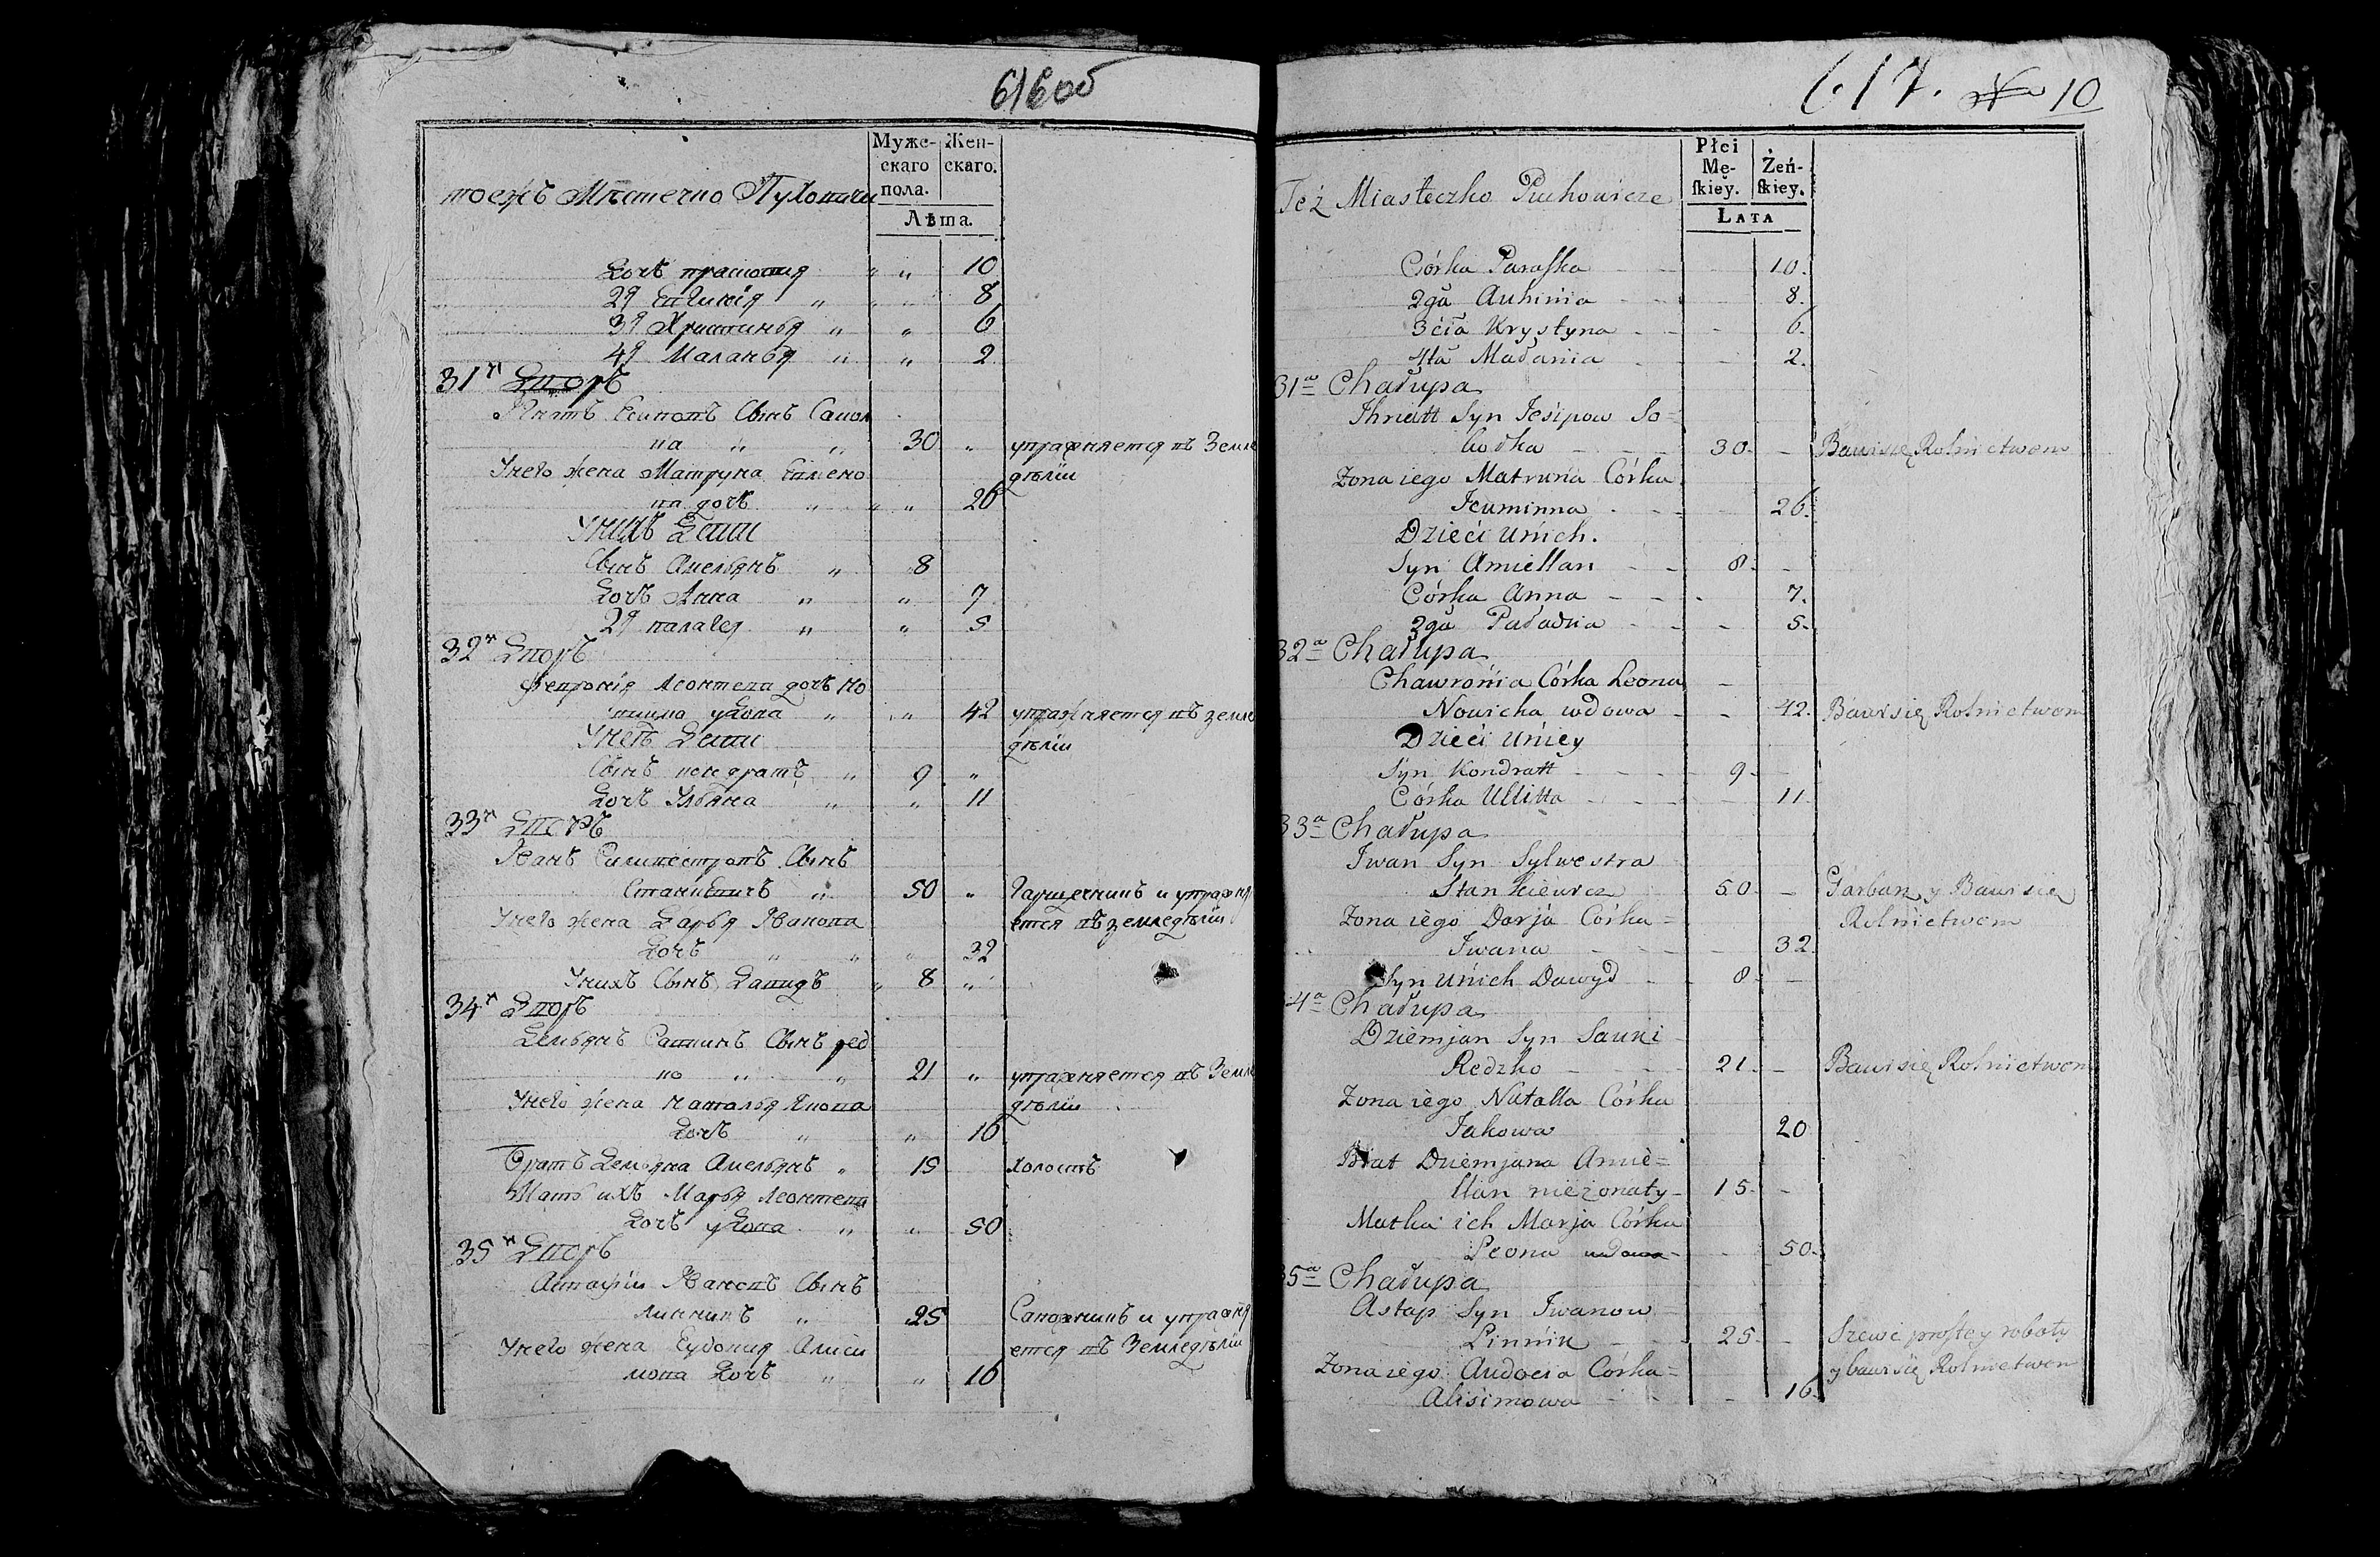 616об
Муже-
скаго
пола.
Жен-
скаго.
Лѣта.
тоежъ Мѣстечко Пуховичи
Дочь прасковия " " 10
2я Евгинія " " 8
3я Христинья " " 6
4я Маланья " " 2
31й Дворъ
Игнатъ Есиповъ Сынъ Савол
ка " " 30 " упражняется въ Земле
Унего жена Матруна дѣліи
ва дочь " " " 26
Унихъ Дети
Сынъ Амельянъ " 8
Дочь Анна " " 7
2я палагея " " 5
32й Дворъ
Февронія Леонтева дочь но
вицка удова " " 42 упражняется въ земле
Унеѣ Дети дѣліи
Сынъ кондратъ " 9 "
Дочь Ульяна " " 11
33й Дворъ
Иванъ Силивестровъ Сынъ
Станкевичъ " 50 " Гарщечникъ и упражня
Унего жена Дарья Иванова ется въ земледѣліи
Дочь " " " 32
Унихъ Сынъ Давидъ " 8 "
34й Дворъ
Демьянъ Саввинъ Сынъ ред
ко " " 21 " упражняется въ Земле
Унего жена Наталья Якова дѣліи
Дочь " " 16
Братъ Демьяна Амельянъ " 15 Холостъ
Мать ихъ Марья Леонтева
Дочь удова " " 50
35й Дворъ
Астафіи Ивановъ Сынъ
линникъ " 25 Сапожникъ и упражня
Унего жена Еудокия Ониси ется въ Земледѣліи
мова Дочь " " 16
617. 10
Płci
Mę-
skiey.
Żeń-
skiey.
LATA
Też Miasteczko Puchowicze
Córka Paraska - - 10.
2ga Auhinia - - 8.
3cia Krystyna - - 6.
4ta Małania - - 2.
31a Chałupa
Ihnatt Syn Jesipow So=
łodka - - 30. - Bawi się Rolnictwem
Zona iego Matruna Córka
Jeuminna - - 26.
Dzieci unich.
Syn Amiellan - - 8. -
Córka Anna - - - 7.
2ga Pałachia - - - 5.
32a Chałupa
Chawronia Córka Leona -
Nowicka wdowa - - 42. Bawi się Rolnictwem
Dzieci uniey
Syn Kondratt - - - 9. -
Córka Ullitta - - - 11.
33a Chałupa
Iwan Syn Sylwestra
Stankiewicz - 50. - Garbarz y Bawi się
Zona iego Darja Córka= Rolnictwem
Iwana - - - 32.
Syn unich Dawyd - - 8. -
34a Chałupa
Dziemjan Syn Sauki
Redzko - - - 21. - Bawi się Rolnictwem
Zona iego Natalla Córka
Jakowa 20
Brat Dziemjana Amie=
llan nieżonaty - 15. -
Matka ich Marja Córka
Leona wdowa - - 50.
35a Chałupa
Astap Syn Iwanow
Linnik - - 25. - Szewc prostey roboty
Zona iego Audocia Córka= y bawi się Rolnictwem
Alisimowa - - - 16.